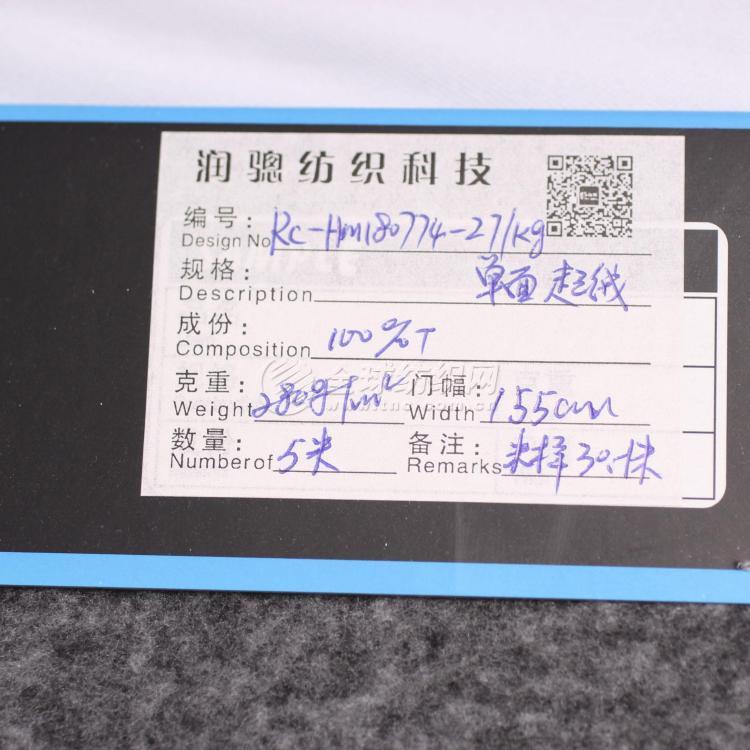 润骢纺织科技
编号: Rc-HM180774-27/kg
Design No
规格: 单面起绒
Description
成份: 100%T
Composition
全球纺织网
克重: 280g/m² 门幅: 155cm
Weight Width
数量: 5米 备注: 米样30.-/米
Numberof Remarks